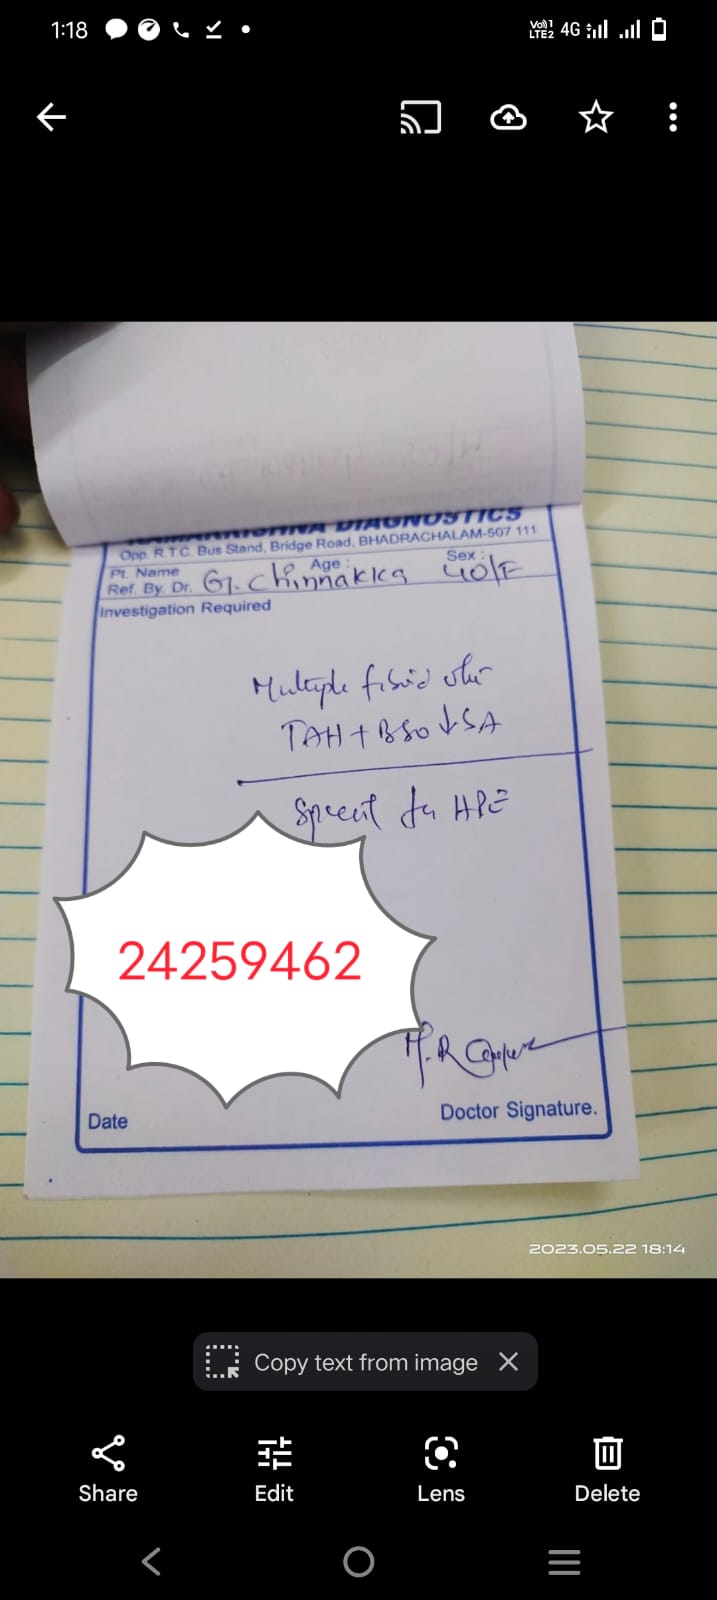 1:18
Vo)) 1 LTE2 4G
RAMAKRISHNA DIAGNOSTICS
Opp. R.T.C. Bus Stand, Bridge Road, BHADRACHALAM-507 111
Pt. Name Age : Sex :
Ref. By. Dr. G. Chinnakka 40/F
Investigation Required
Multiple fibroid
TAH + BSO ↓ SA
for HPE
24259462
M.R
Date Doctor Signature.
2023.05.22 18:14
Copy text from image
Share Edit Lens Delete